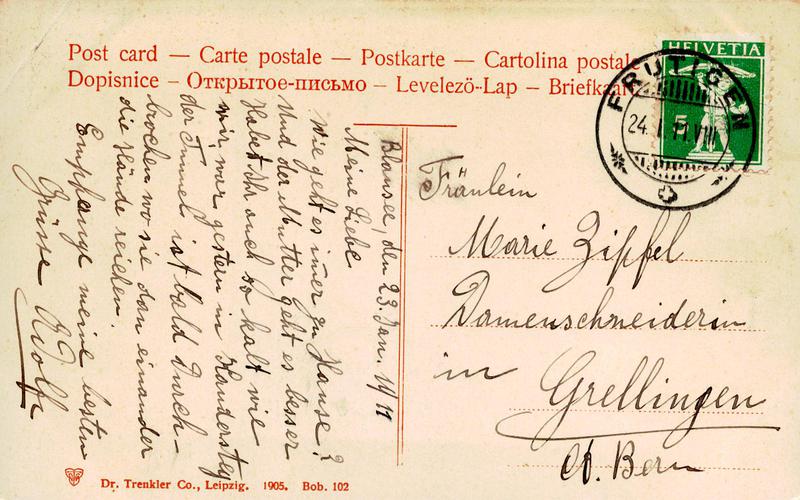 Post card — Carte postale — Postkarte — Cartolina postale
Dopisnice — Открытое-письмо — Levelező-Lap — Briefkaart
HELVETIA
5
FRUTIGEN
24. I. 11. VIII
Blausee, den 23. Jan. 1911
Meine Liebe
Wie geht es imer zu Hause?
Und der Mutter geht es besser
Habet Ihr auch so kalt wie
wir war gestern in Kandersteg
der Tunel ist bald durch-
brochen wo sie dan einander
die Hände reichen.
Empfange meine besten
Grüsse Adolf
Fräulein
Marie Zipfel
Damenschneiderin
in Grellingen
Ct. Bern
Dr. Trenkler Co., Leipzig. 1905. Bob. 102